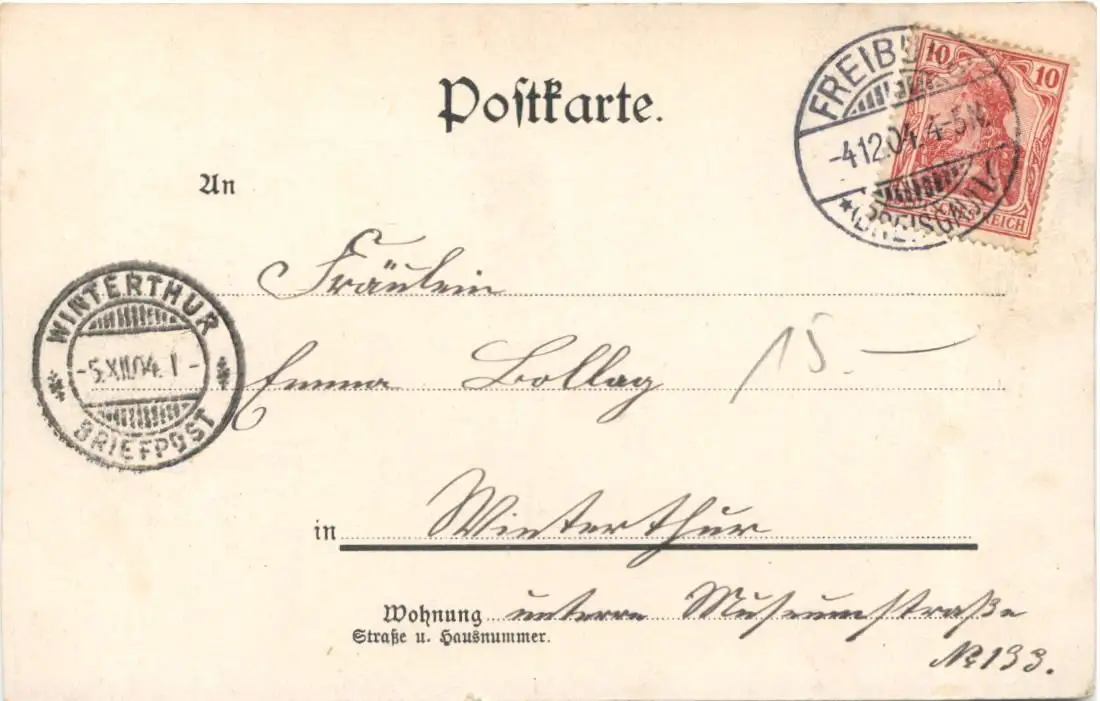 Postkarte.
FREIB
-4.12.04.4-5N.
*(BREISGAU)
10 10
REICH
An
Fräulein
WINTERTHUR
-5.XII.04. I -
BRIEFPOST
Emma Bollag
15.—
in Winterthur
Wohnung untere Museumstraße
Straße u. Hausnummer.
No 133.